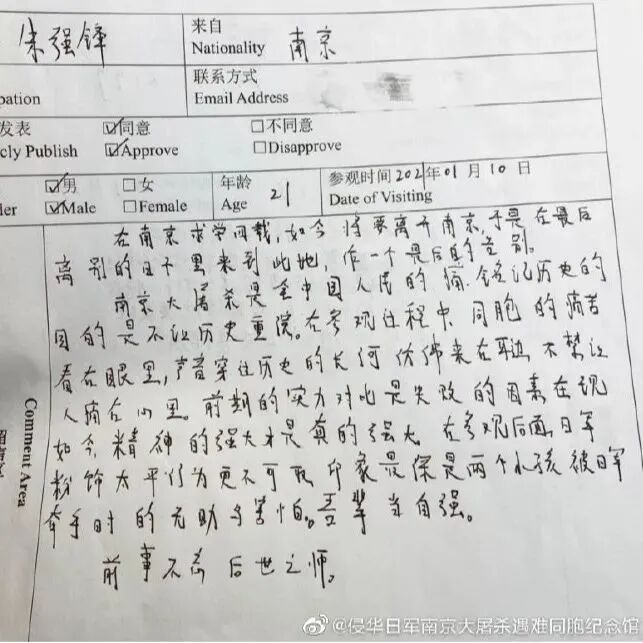 朱强锋
来自
Nationality 南京
联系方式
Email Address
pation
发表 ☑同意 □不同意
cly Publish ☑Approve □Disapprove
☑男 □女 年龄 21 参观时间 2021年01月10日
der ☑Male □Female Age Date of Visiting
Comment Area
在南京求学四载,如今将要离开南京,于是在最后
离别的日子里来到此地,作一个最后的告别。
南京大屠杀是全中国人民的痛.铭记历史的
目的是不让历史重演。在参观过程中 同胞的痛苦
看在眼里,声音穿过历史的长河仿佛来在耳边,不禁让
人痛在心里。前期的实力对比是失败的因素在现
如今,精神的强大才是真的强大。在参观后面,日军
粉饰太平行为更不可取 印象最深是两个小孩被日军
牵手时的无助与害怕。吾辈当自强。
前事不忘 后世之师。
@侵华日军南京大屠杀遇难同胞纪念馆